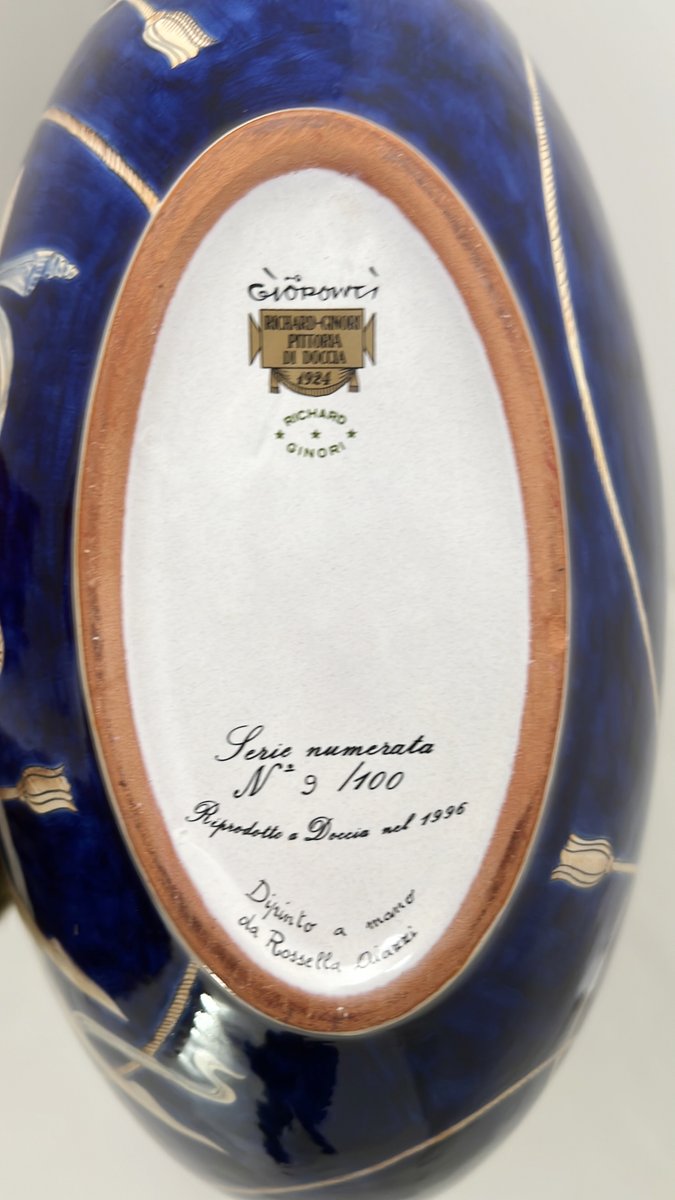 Giòponti
RICHARD-GINORI
PITTORIA
DI DOCCIA
1924
RICHARD
GINORI
Serie numerata
Nº 9 /100
Riprodotto a Doccia nel 1996
Dipinto a mano
da Rossella